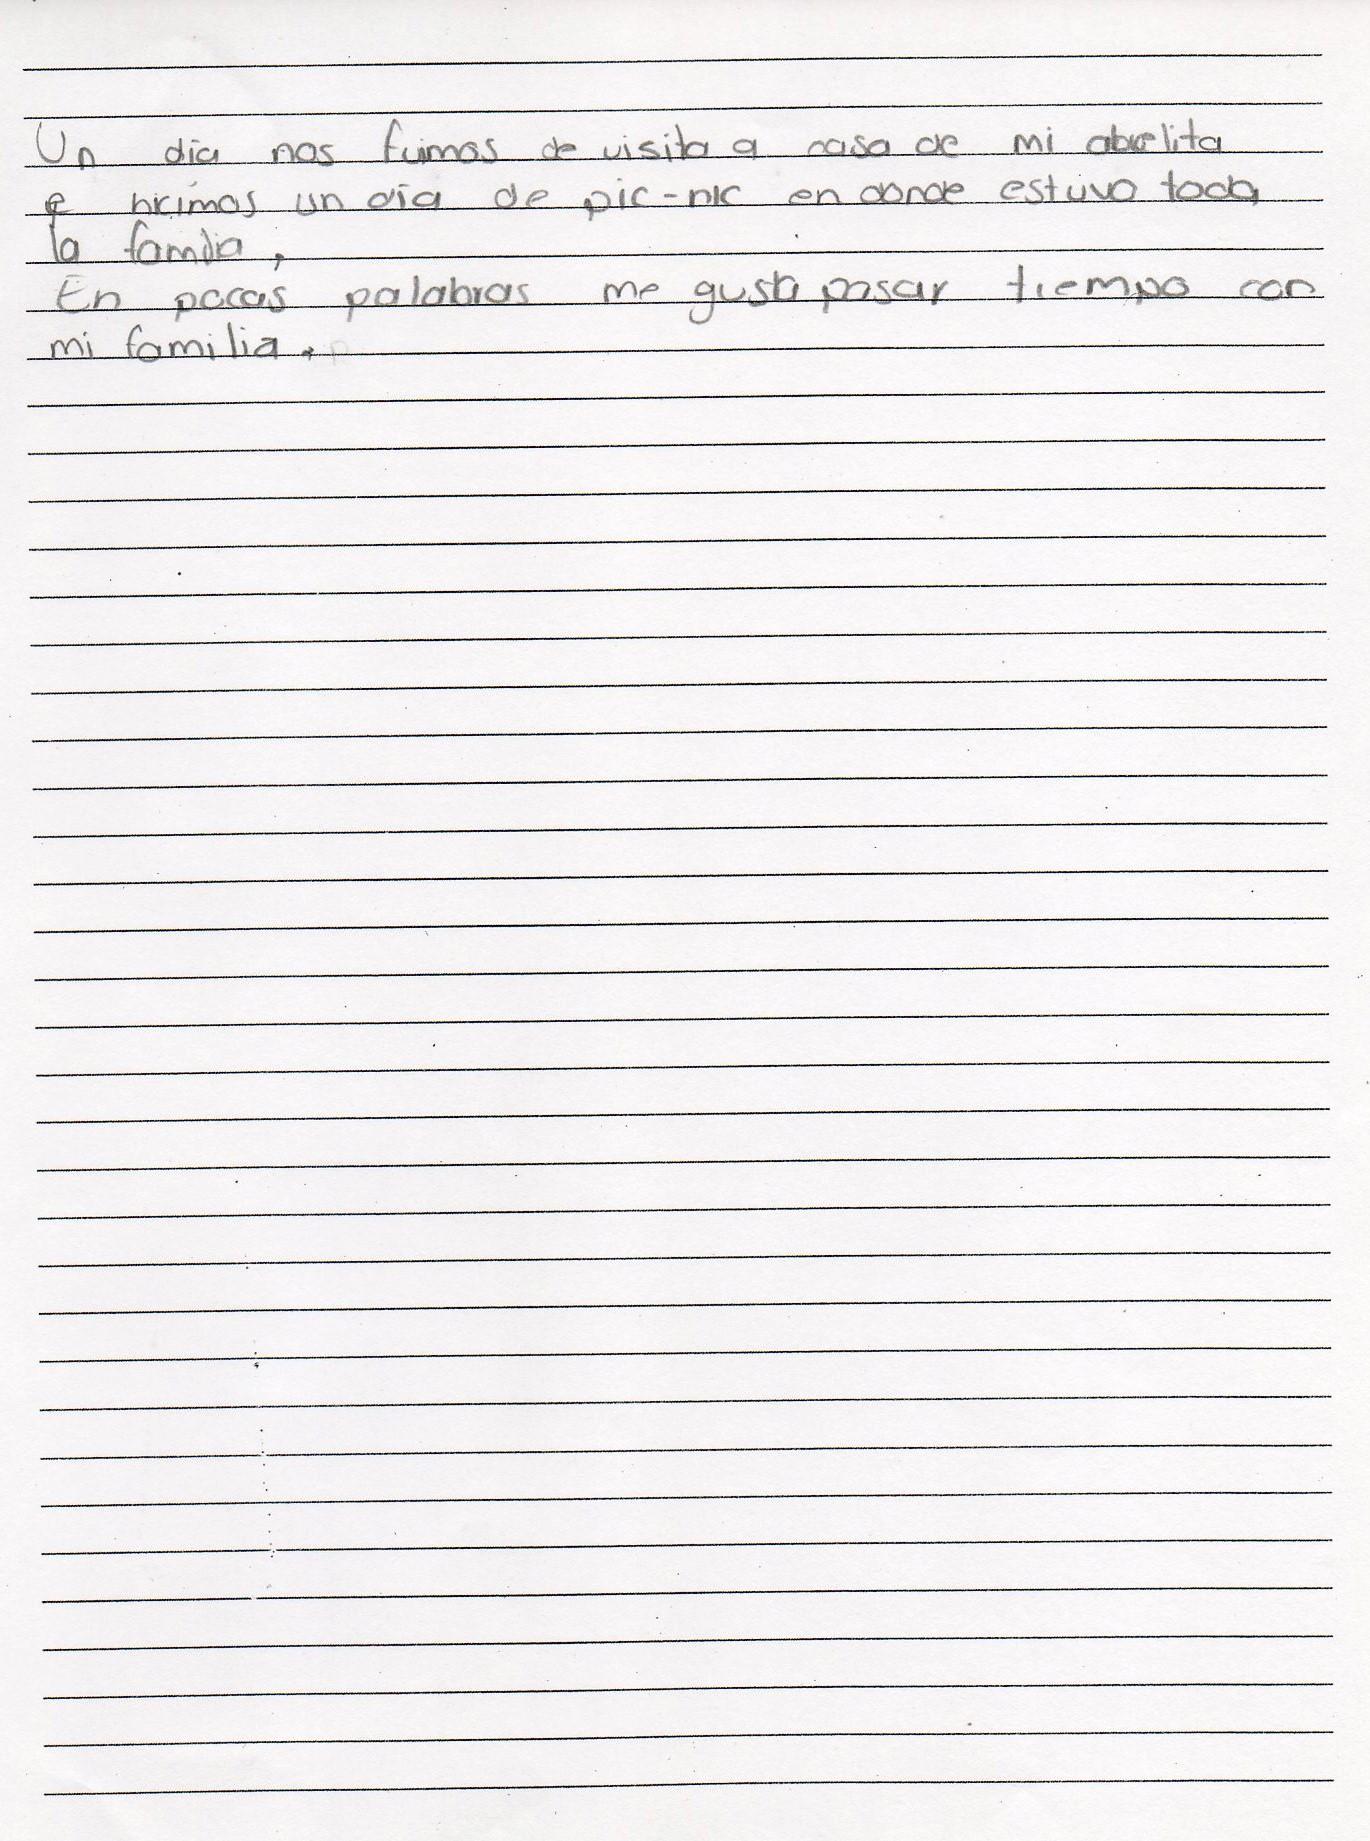 Un día nos fuimos de visita a casa de mi abuelita
e hicimos un día de pic-nic en donde estuvo toda
la familia,
En pocas palabras me gusta pasar tiempo con
mi familia.